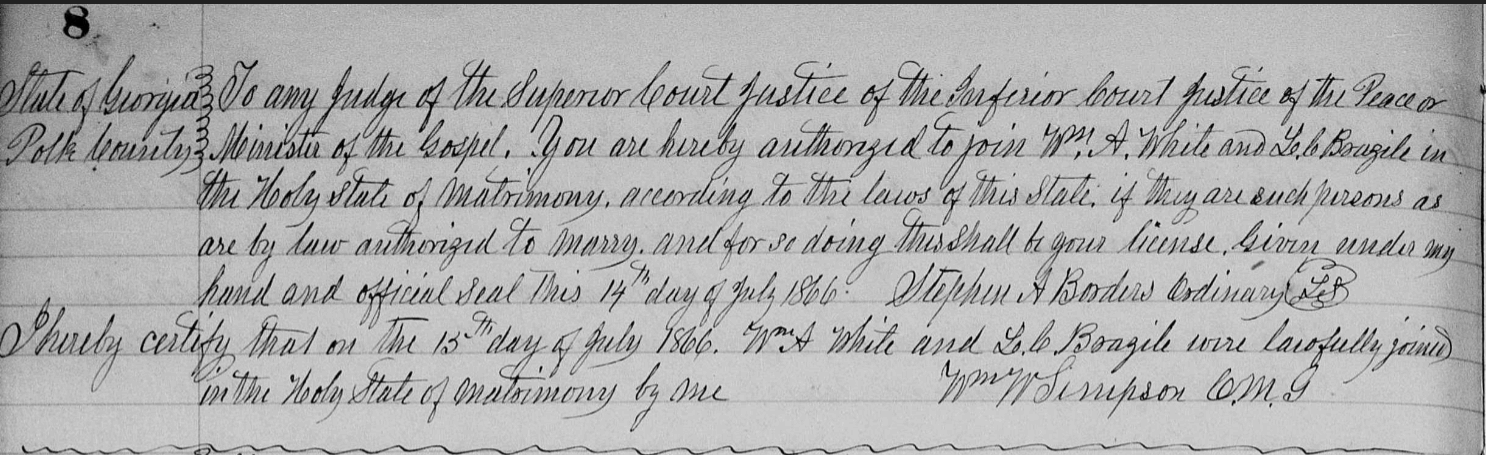 8
State of Georgia To any Judge of the Superior Court Justice of the Inferior Court Justice of the Peace or
Polk County Minister of the Gospel. You are hereby authorized to join Wm. A. White and L. C. Brazile in
the Holy state of Matrimony. according to the laws of this State. if they are such persons as
are by law authorized to marry. and for so doing this shall be your license. Given under my
hand and official seal this 14th day of July 1866. Stephen A Borders Ordinary LS
I hereby certify that on the 15th day of July 1866. Wm A White and L. C. Brazile were lawfully joined
in the Holy State of Matrimony by me Wm W Simpson O. M. G